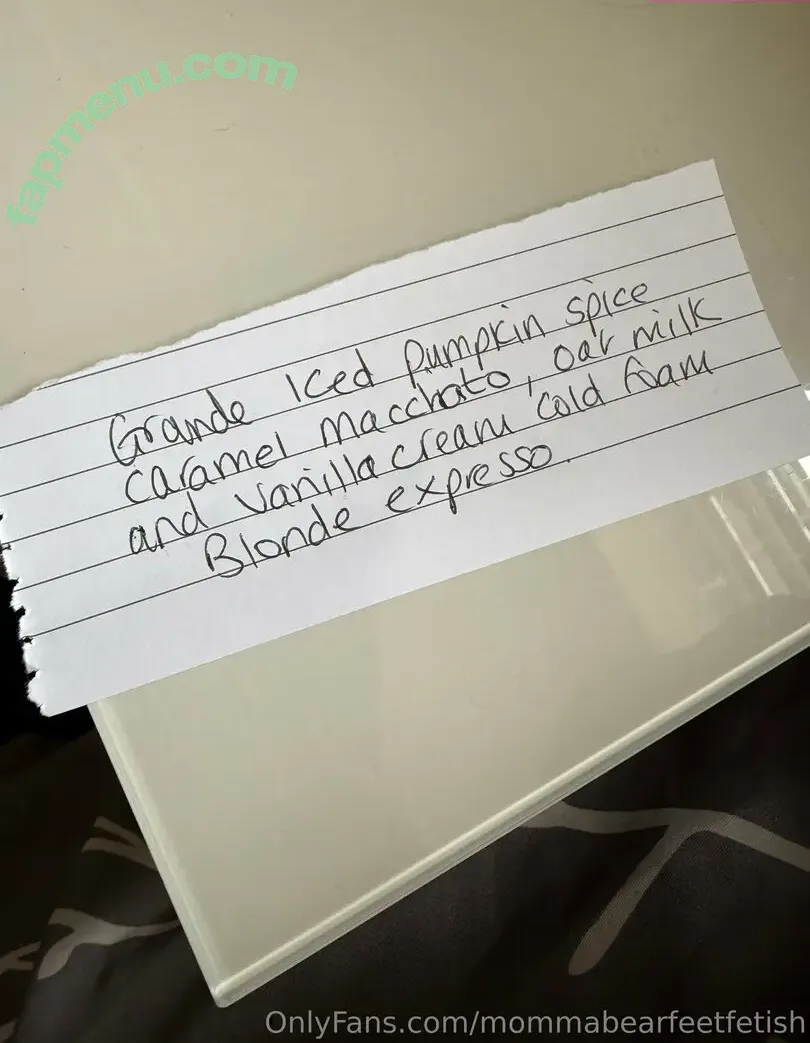 fapmenu.com
Grande Iced pumpkin spice
caramel macchato, oat milk
and vanilla cream cold foam
Blonde expresso.
OnlyFans.com/mommabearfeetfetish